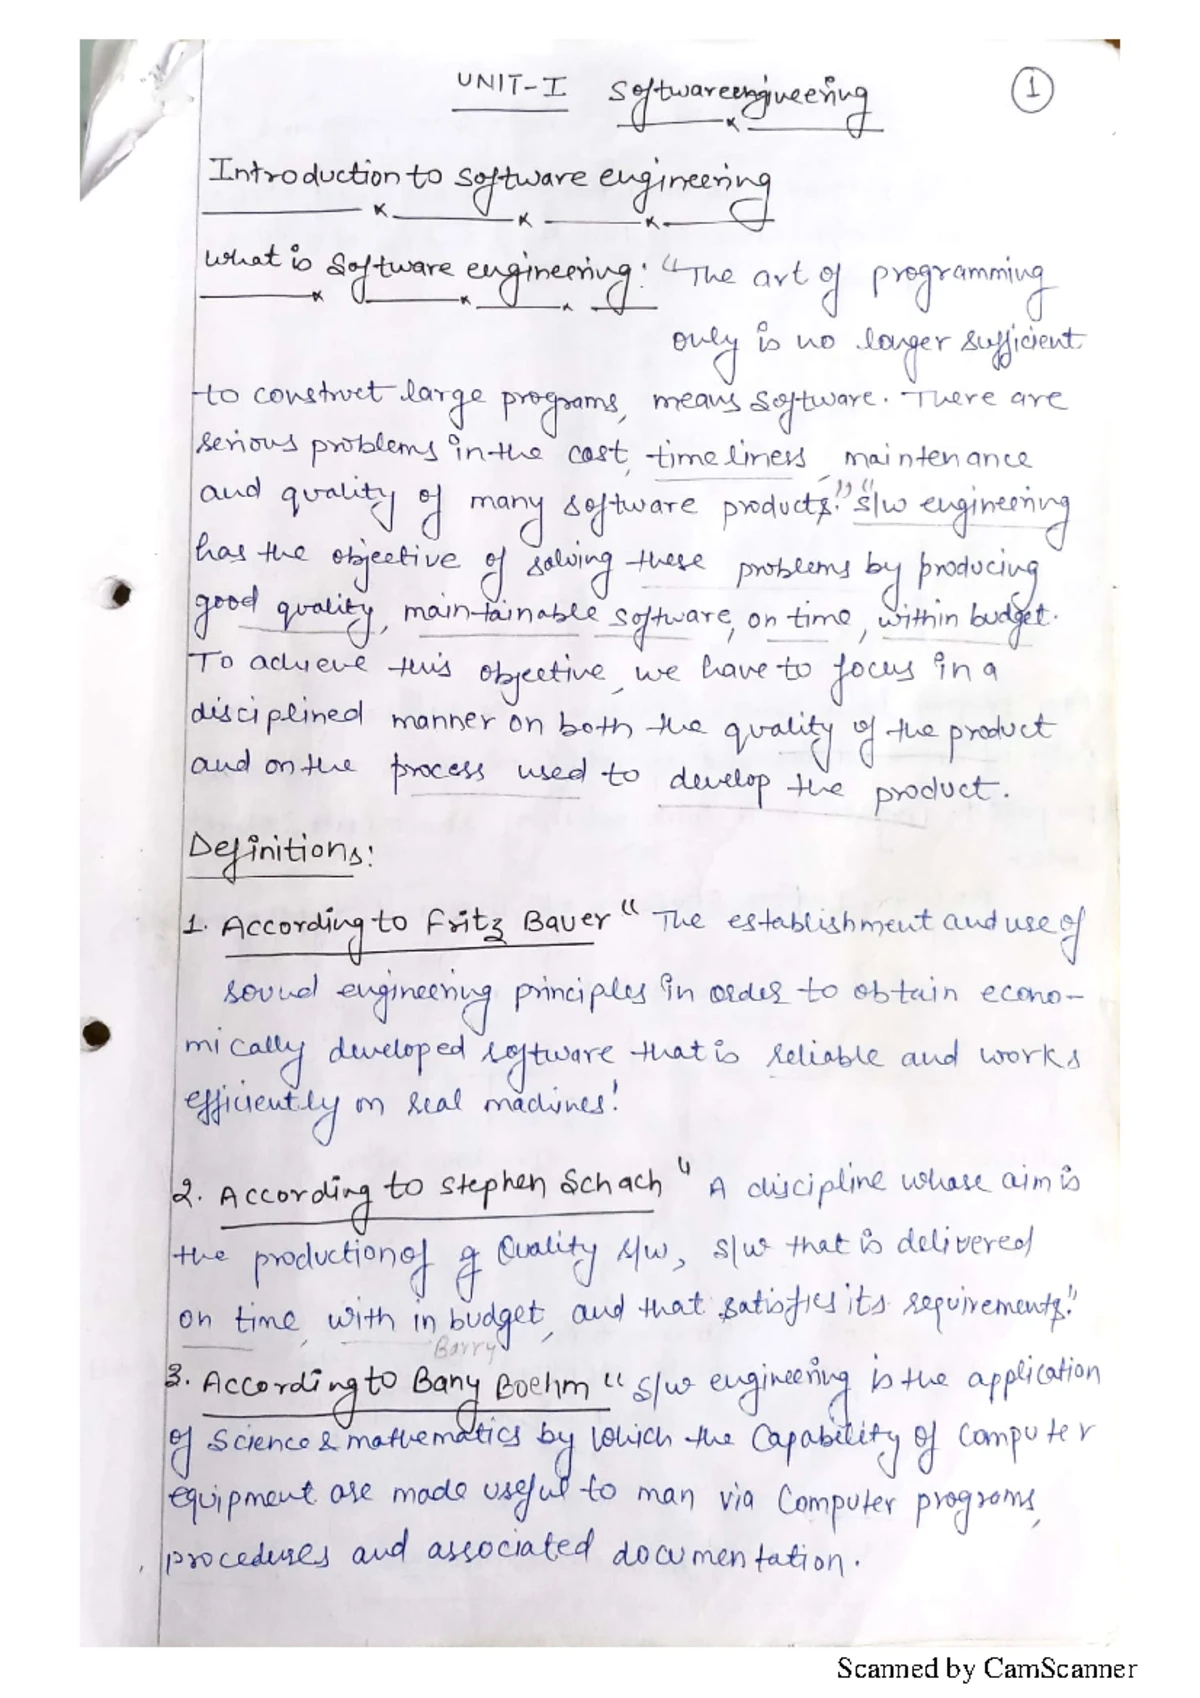 UNIT-I Software engineering 1
Introduction to software engineering
What is software engineering: "The art of programming
only is no longer sufficient
to construct large programs, means software. There are
serious problems in the cost, timeliness, maintenance
and quality of many software products." "S/w engineering
has the objective of solving these problems by producing
good quality, maintainable software, on time, within budget.
To achieve this objective, we have to focus in a
disciplined manner on both the quality of the product
and on the process used to develop the product.
Definitions:
1. According to Fritz Bauer " The establishment and use of
sound engineering principles in order to obtain econo-
mically developed software that is reliable and works
efficiently on real machines!
2. According to Stephen Schach " A discipline whose aim is
the production of g Quality s/w, s/w that is delivered
on time, with in budget, and that satisfies its requirements."
Barry
3. According to Bany Boehm " S/w engineering is the application
of Science & mathematics by which the Capability of Computer
equipment are made useful to man via Computer programs,
procedures and associated documentation.
Scanned by CamScanner